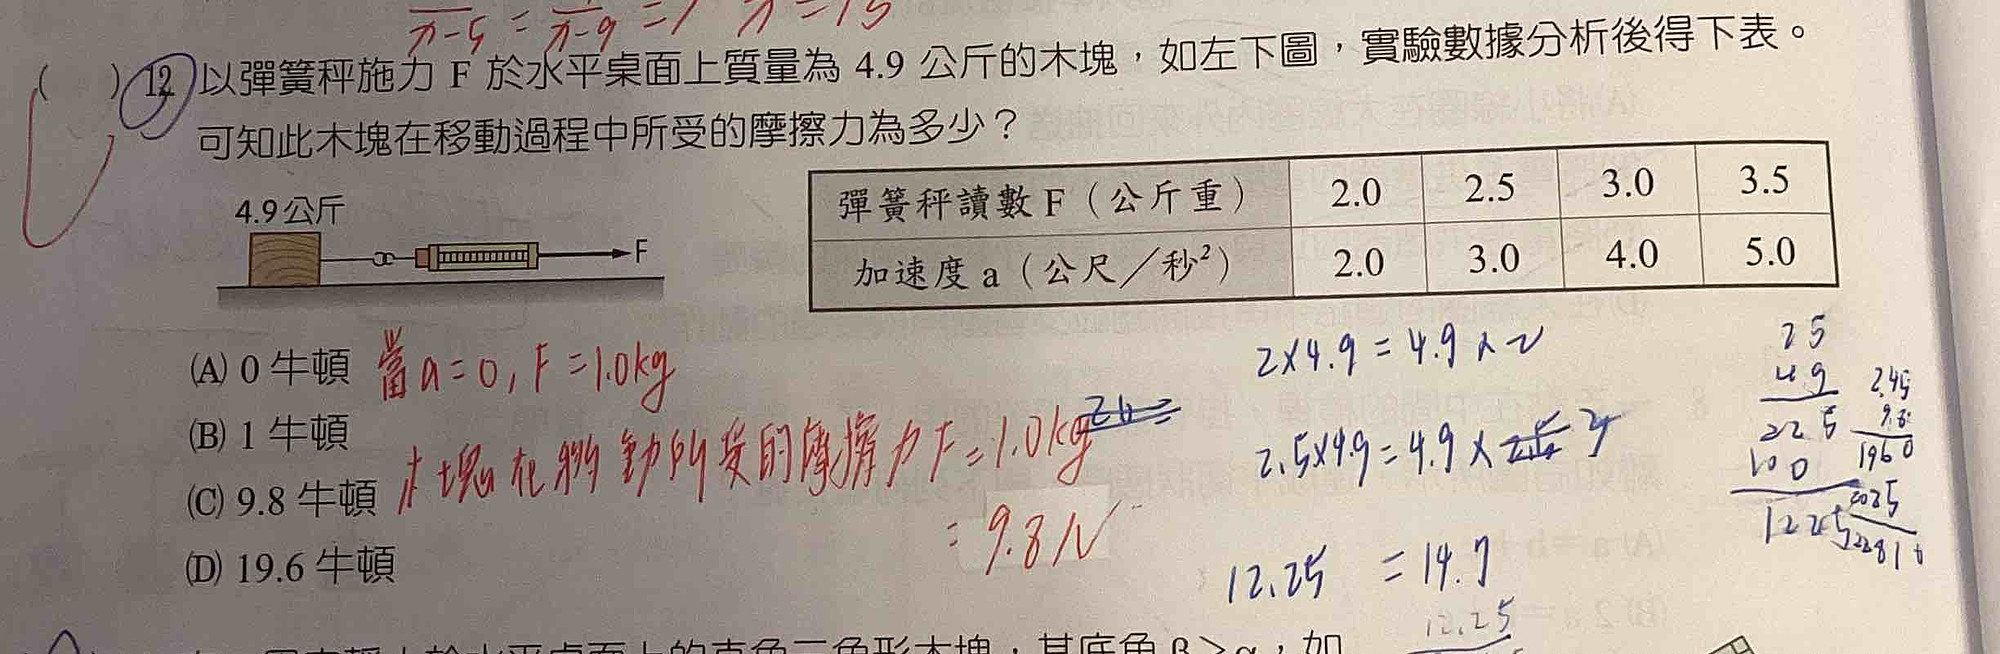 x-5 = x-9 = 1 x = 15
( ) 12 以彈簧秤施力 F 於水平桌面上質量為 4.9 公斤的木塊，如左下圖，實驗數據分析後得下表。
可知此木塊在移動過程中所受的摩擦力為多少？
4.9公斤
F
彈簧秤讀數 F（公斤重） 2.0 2.5 3.0 3.5
加速度 a（公尺／秒²） 2.0 3.0 4.0 5.0
(A) 0 牛頓 當a=0, F=1.0kg
(B) 1 牛頓
木塊在移動所受的摩擦力F=1.0kg
(C) 9.8 牛頓
=9.8N
(D) 19.6 牛頓
2×4.9=4.9×2
2.5×4.9=4.9×
12.25 =14.7
12.25
25
49
225
100
1225
2.45
9.8
1960